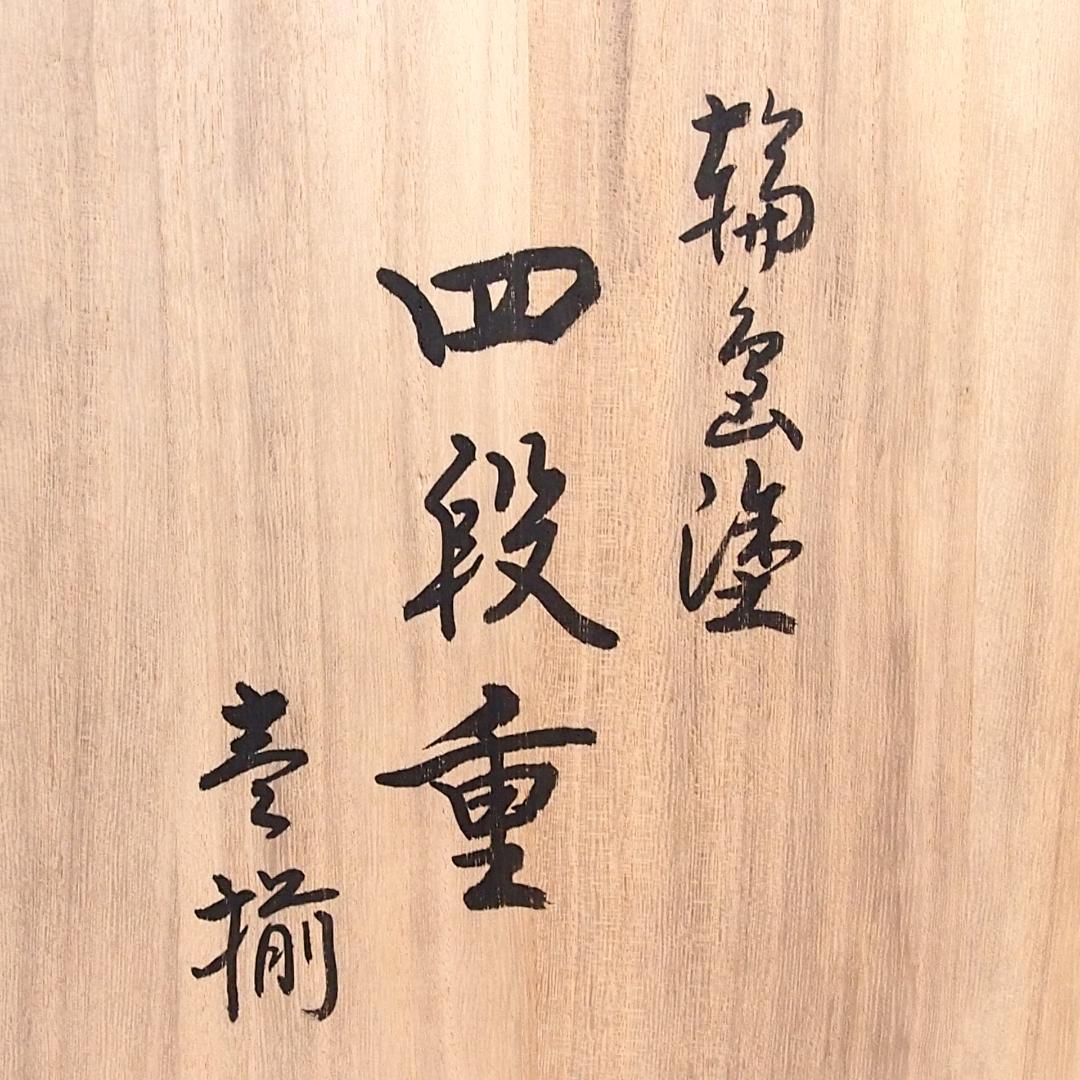 輪島塗
四段重
壱揃